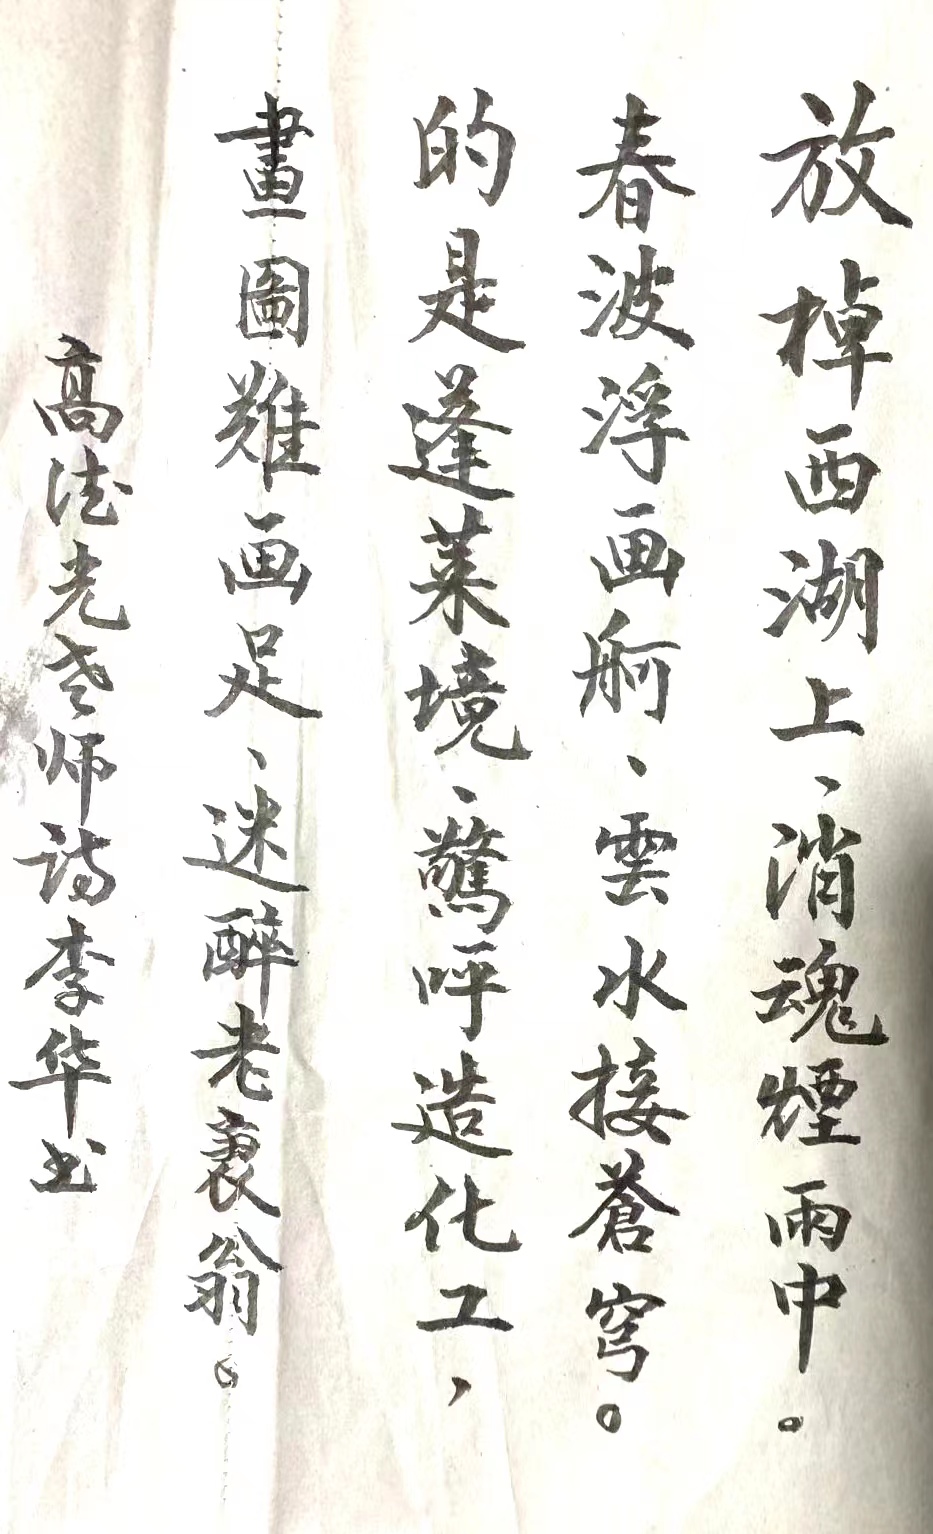 放棹西湖上、消魂煙雨中。
春波浮画舸、雲水接蒼穹。
的是蓬莱境、驚呼造化工，
畫圖難画足、迷醉老衰翁。
高德光老师诗李华书